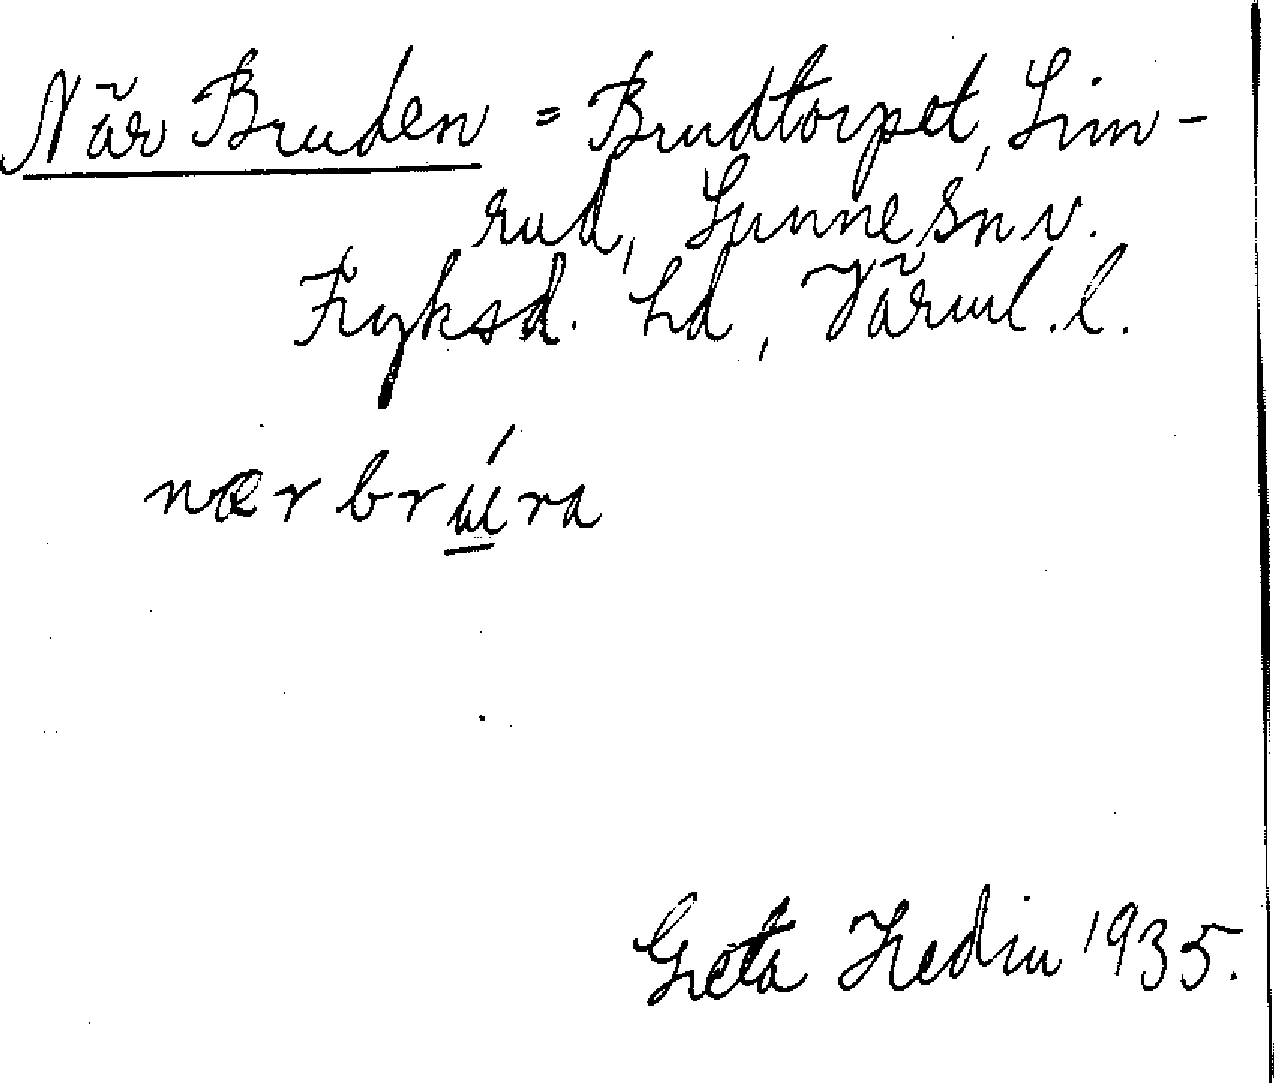 När Bruden = Brudtorpet, Lim-
rud, Sunne sn v.
Fryksd. hd, Värml. l.
nær brúra
Greta Hedin 1935.